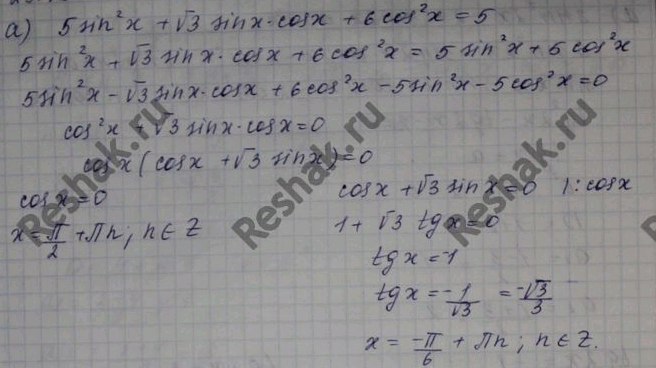 а) 5sin²x + √3 sinx·cosx + 6cos²x = 5
5sin²x + √3 sinx·cosx + 6cos²x = 5sin²x + 5cos²x
5sin²x - √3 sinx·cosx + 6cos²x - 5sin²x - 5cos²x = 0
cos²x + √3 sinx·cosx = 0
cosx (cosx + √3 sinx) = 0
cosx = 0
x = π/2 + πn; n ∈ Z
cosx + √3 sinx = 0 |: cosx
1 + √3 tgx = 0
tgx = -1
tgx = -1/√3 = -√3/3
x = -π/6 + πn; n ∈ Z.
Reshak.ru
Reshak.ru
Reshak.ru